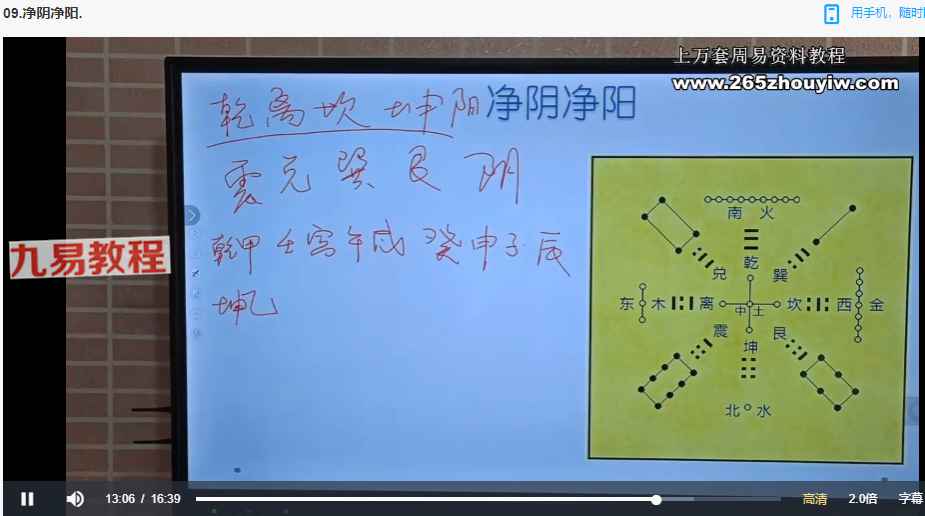 09.净阴净阳.
用手机，随时
上万套周易资料教程
www.265zhouyiw.com
九易教程
乾离坎坤阳 净阴净阳
震兑巽艮 阴
乾甲壬寅午戌癸申子辰
坤乙
南 火
兑 乾 巽
东 木 离 中土 坎 西 金
震 坤 艮
北 水
13:06 / 16:39
高清 2.0倍 字幕